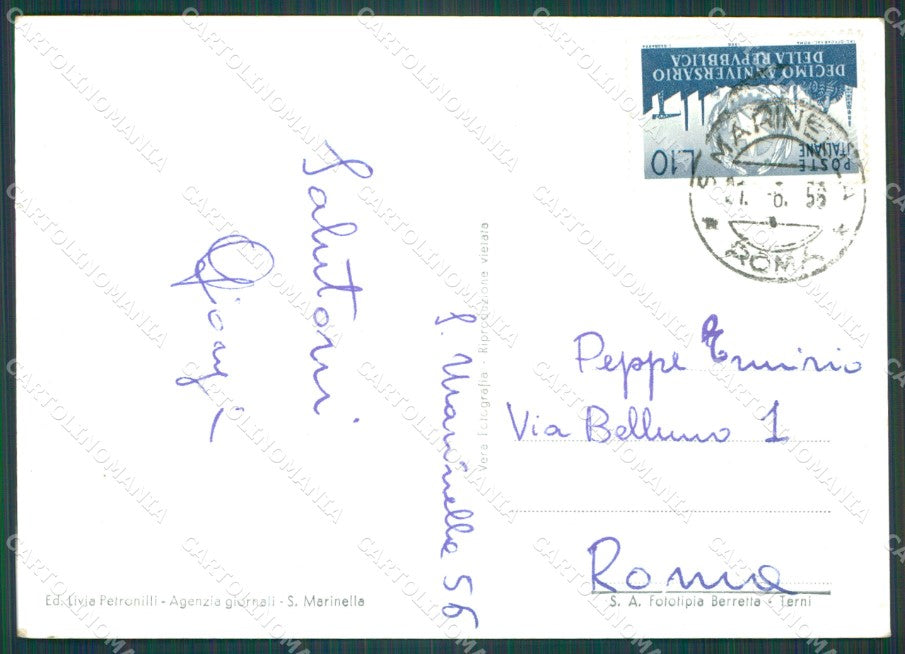 DECIMO ANNIVERSARIO
DELLA REPVBBLICA
L.10
POSTE
ITALIANE
S. MARINELLA
27. 6. 56
* ROMA *
Salutoni
S. Marinella 56
Vera Fotografia - Riproduzione vietata
Peppe
Via Belluno 1
Roma
Ed. Livia Petronilli - Agenzia giornali - S. Marinella
S. A. Fototipia Berretta - Terni
CARTOLINOMANIA